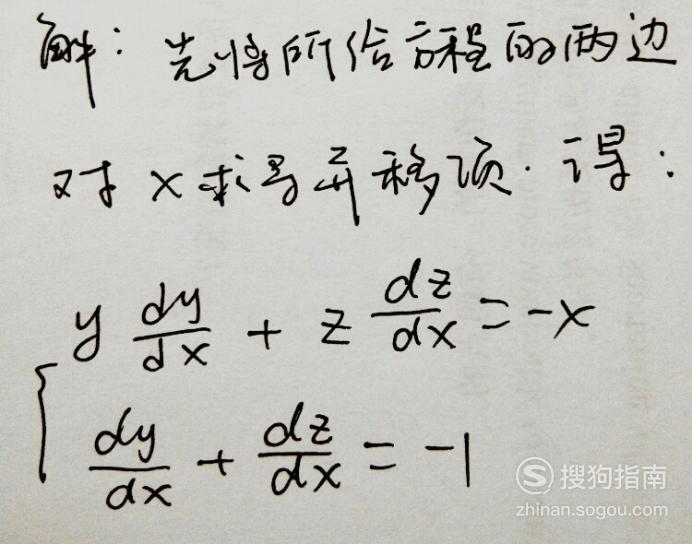 解：先将所给方程的两边
对x求导并移项.得：
y dy/dx + z dz/dx = -x
dy/dx + dz/dx = -1
搜狗指南
zhinan.sogou.com